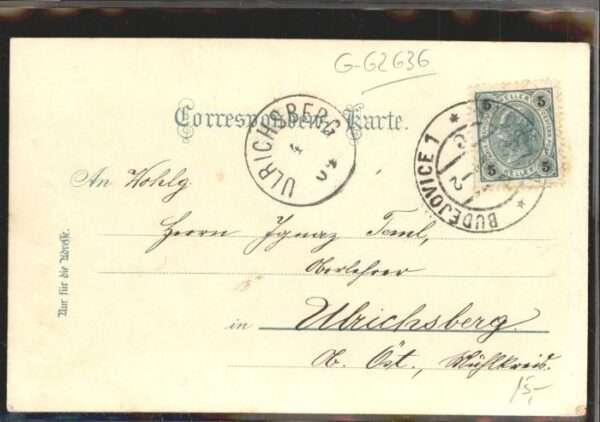 G-G2636
Correspondenz-Karte.
ULRICHSBERG
4
BUDĚJOVICE 1
5 5
5 5
HELLER
An Wohlg.
Herrn Ignaz Toml,
Oberlehrer
in Ulrichsberg
Ob. Öst., Mühlkreis.
15,-
Nur für die Adresse.